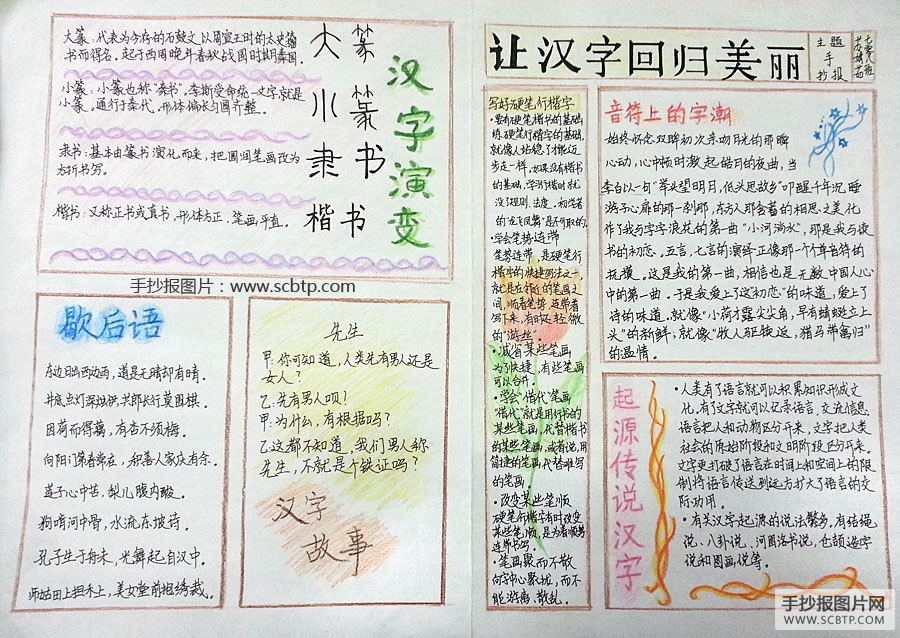 大篆：代表为今存的石鼓文以周宣王时的太史籀
书而得名。起于西周晚年春秋战国时期秦国。
小篆：小篆也称"秦书"。李斯受命统一文字就是
小篆。通行于秦代。形体偏长匀圆齐整。
隶书：基本由篆书演化而来，把圆润笔画改为
方折书写。
楷书：又称正书或真书，形体方正，笔画平直。
大篆
小篆
隶书
楷书
汉字演变
手抄报图片：www.scbtp.com
歇后语
东边日出西边雨，道是无晴却有晴。
井底点灯深烛伊，共郎长行莫围棋。
因荷而得藕，有杏不须梅。
向阳门第春常在，积善人家庆有余。
莲子心中苦，梨儿腹内酸。
狗啃河中骨，水流东坡诗。
孔子生于舟末，光舞起自汉中。
师姑田上担禾上，美女堂前抱绣裁。
先生
甲：你可知道，人类先有男人还是
女人？
乙：先有男人呗？
甲：为什么，有根据吗？
乙这都不知道。我们男人称
先生，不就是个铁证吗？
汉字
故事
让汉字回归美丽
主题
手
抄报
写好硬笔行楷字
·要有硬笔楷书的基础
练硬笔行楷字的基础，
就像人站稳了才能迈
步走一样。如果没有楷书
的基础，学行楷时就
没了规则、法度。初学者
的"龙飞凤舞"是不可取的
·学会笔势连带
笔势连带，是硬笔行
楷字的快捷写法之一，
就是在邻近的笔画之
间，顺着笔势，连带着
写下来，有时还轻微
的"游丝"。
·减省某些笔画
为了快捷，有些笔画
可以合并。
·学会"借代"笔画
"借代"就是用行书的
某些笔画，代替楷书
的某些笔画，或者说，用
简捷的笔画代替难写
的笔画。
·改变某些笔顺
硬笔行楷字有时改变
某些笔顺，是为着顺势
连带书写。
·笔画聚而不散
向字中心聚拢，而不
能游离、散乱。
音符上的字潮
始终怀念双眸初次亲吻月光的那瞬
心动，心中顿时激起皓月的夜曲，当
李白以一句"举头望明月，低头思故乡"叩醒千年沉睡
游子心扉的那一刹那，东方人那含蓄的相思之美化
作了我与字字浪花的第一曲"小河淌水"，那是我与读
书的初恋。五言，七言的演绎正像那一个个单音符的
抚摸。这是我的第一曲，相信也是无数中国人心
中的第一曲。于是我爱上了这"初恋"的味道，爱上了
诗的味道。就像"小荷才露尖尖角，早有蜻蜓立上
头"的新鲜，就像"牧人驱犊返，猎马带禽归"
的温情。
起源传说汉字
·人类有了语言就可以积累知识形成文
化。有了文字就可以记录语言，交流信息
语言把人和动物区分开来，文字把人类
社会的原始阶段和文明阶段区分开来。
文字更打破了语言在时间上和空间上的限
制将语言传送到远方扩大了语言的交
际功用
·有关汉字起源的说法繁多，有结绳
说、八卦说、河图洛书说，仓颉造字
说和图画说等。
手抄报图片网
WWW.SCBTP.COM